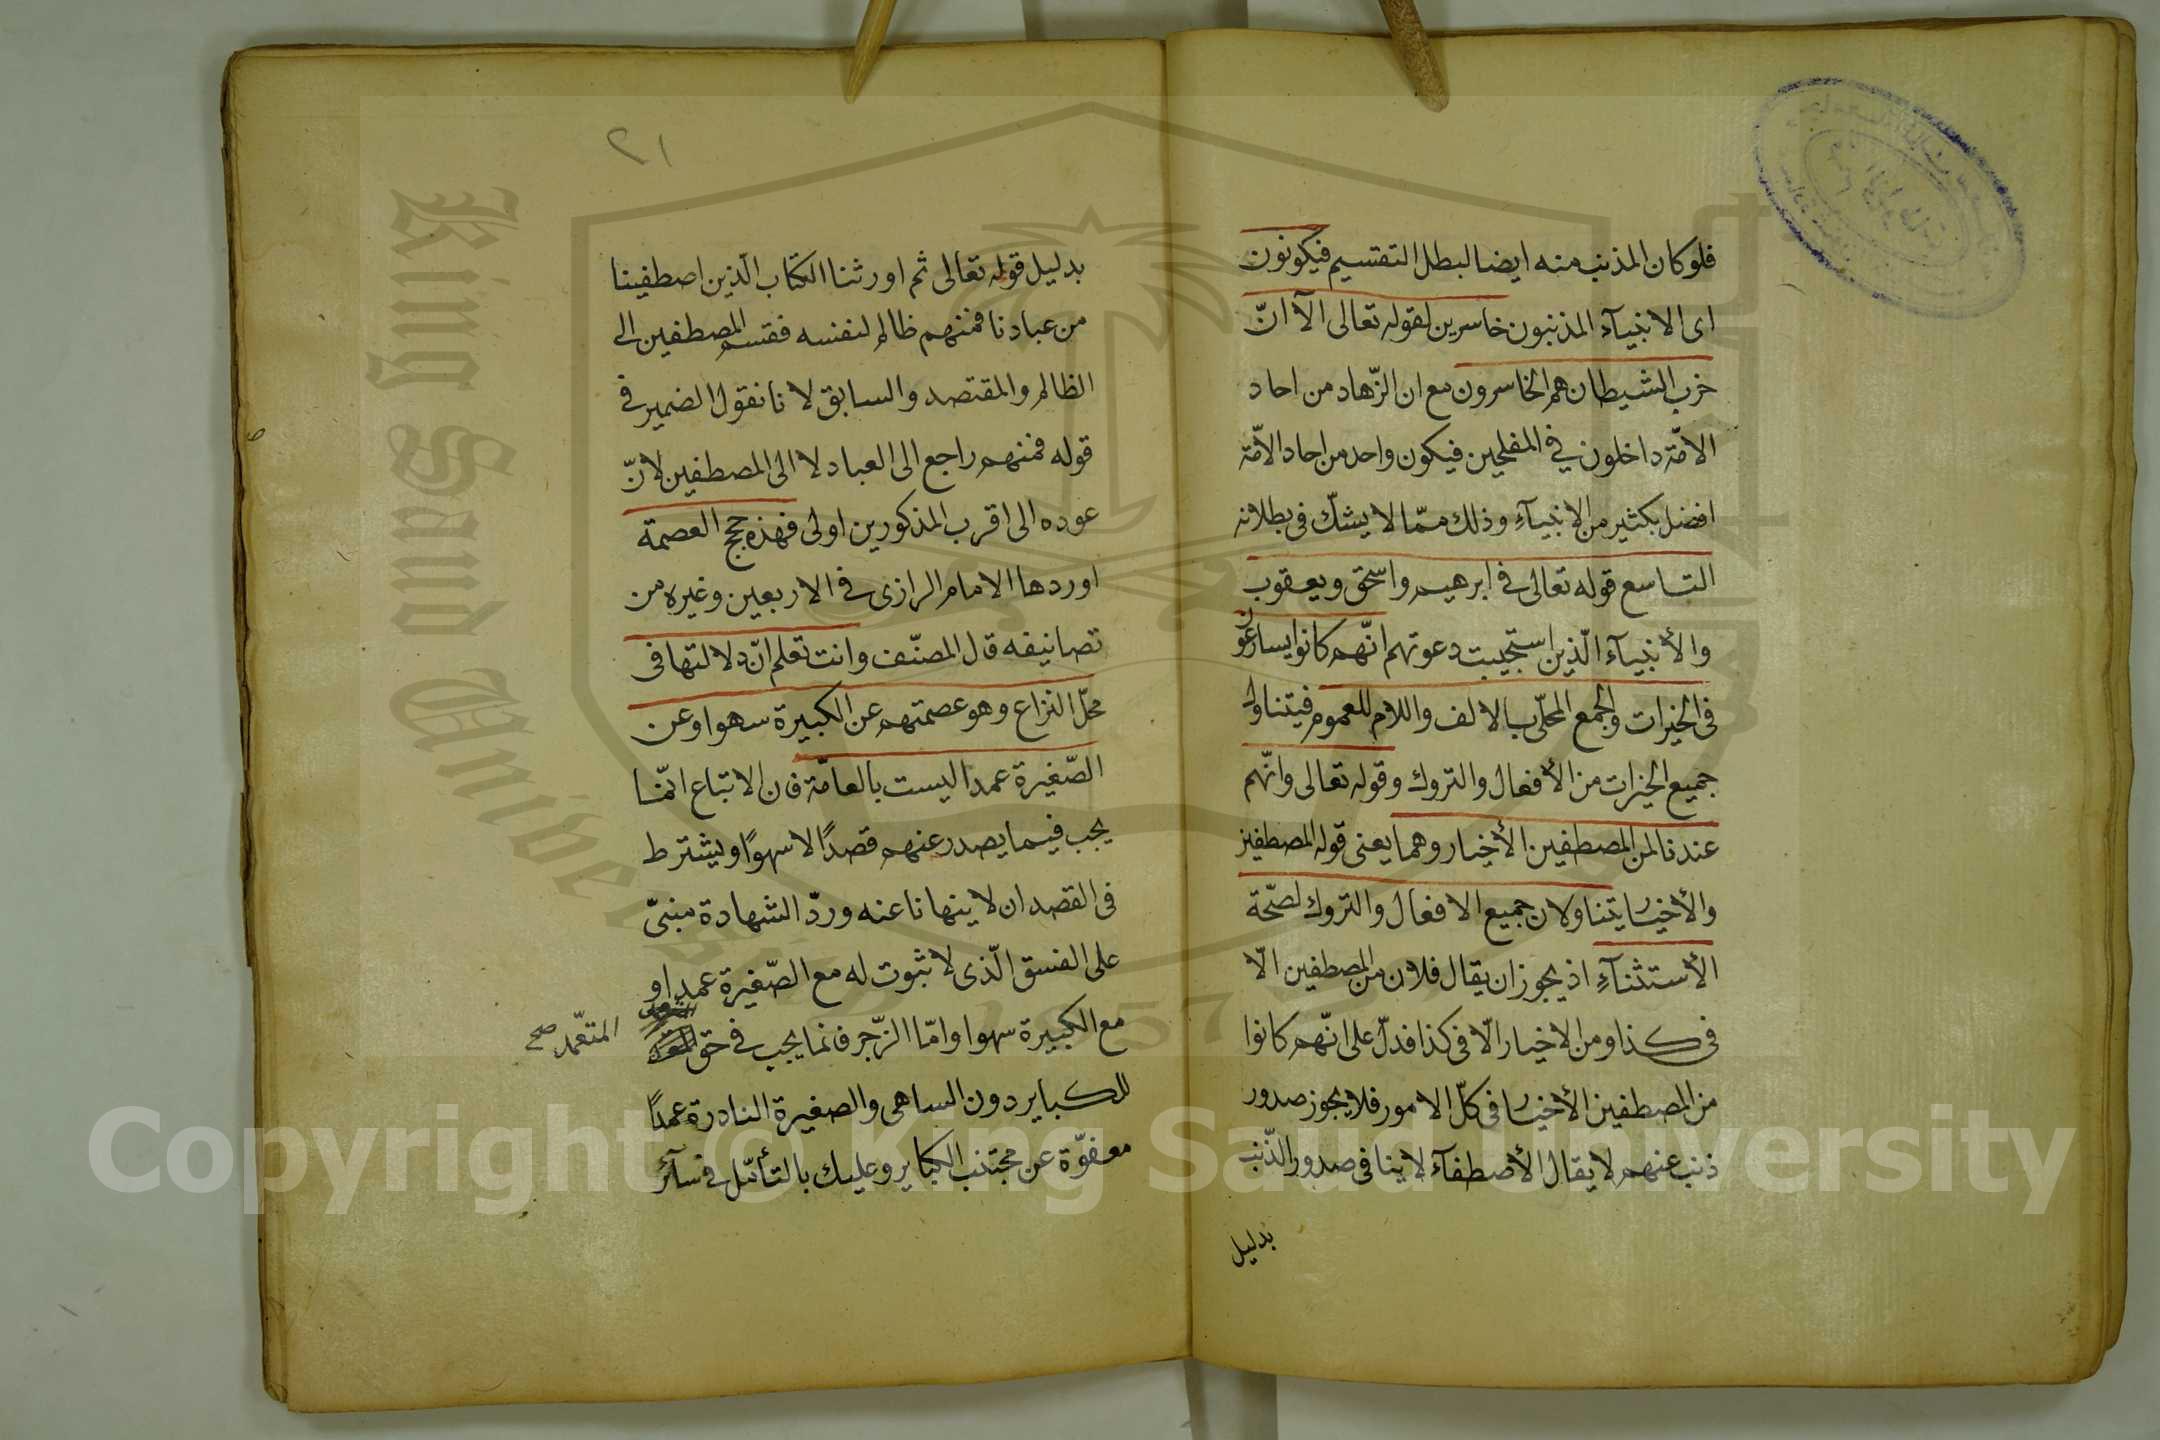 فلوكان المذنب منه ايضا لبطل التقسيم فيكونون
اى الانبيآء المذنبون خاسرين لقوله تعالى الآ انّ
حزب الشيطان هم الخاسرون مع ان الزّهاد من احاد
الامّة داخلون في المفلحين فيكون واحد من احاد الامّة
افضل بكثير من الانبيآء وذلك ممّا لا يشكّ فى بطلانه
التاسع قوله تعالى فى ابرهيم واسحق ويعقوب
والأنبيآء الّذين استجيبت دعوتهم انّهم كانوا يسارعون
فى الخيرات والجمع المحلّى بالالف واللام للعموم فيتناول
جميع الخيرات من الأفعال والتروك وقوله تعالى وانّهم
عندنا لمن المصطفين الأخيار وهما يعنى قوله المصطفين
والأخيار يتناولان جميع الافعال والتروك لصّحة
الأستثنآء اذ يجوز ان يقال فلان من المصطفين الّا
فى كذا ومن الاخيار الّا فى كذا فدلّ على انّهم كانوا
من المصطفين الأخيار فى كلّ الامور فلا يجوز صدور
ذنب عنهم لا يقال الأصطفآء لا ينافى صدور الذّنب
بدليل
٢١
بدليل قوله تعالى ثم اورثنا الكتاب الّذين اصطفينا
من عبادنا فمنهم ظالم لنفسه فقسم المصطفين الى
الظالم والمقتصد والسابق لانا نقول الضمير فى
قوله فمنهم راجع الى العباد لا الى المصطفين لانّ
عوده الى اقرب المذكورين اولى فهذه حجج العصمة
اوردها الامام الرازى فى الاربعين وغيره من
تصانيفه قال المصنّف وانت تعلم انّ دلالتها فى
محلّ النزاع وهو عصمتهم عن الكبيرة سهوا وعن
الصّغيرة عمدا ليست بالعامّة فان الاتباع انّما
يجب فيما يصدر عنهم قصدًا لا سهوًا ويشترط
فى القصد ان لا ينهانا عنه وردّ الشهادة مبنىّ
على الفسق الّذى لا ثبوت له مع الصّغيرة عمدا و
مع الكبيرة سهوا وامّا الزّجر فانما يجب فى حق
المتعّمد صح
للكباير دون الساهى والصغيرة النادرة عمدًا
معفوّة عن مجتنب الكباير وعليك بالتأمّل فى سآئر
King Saud University
1957
Copyright © King Saud University